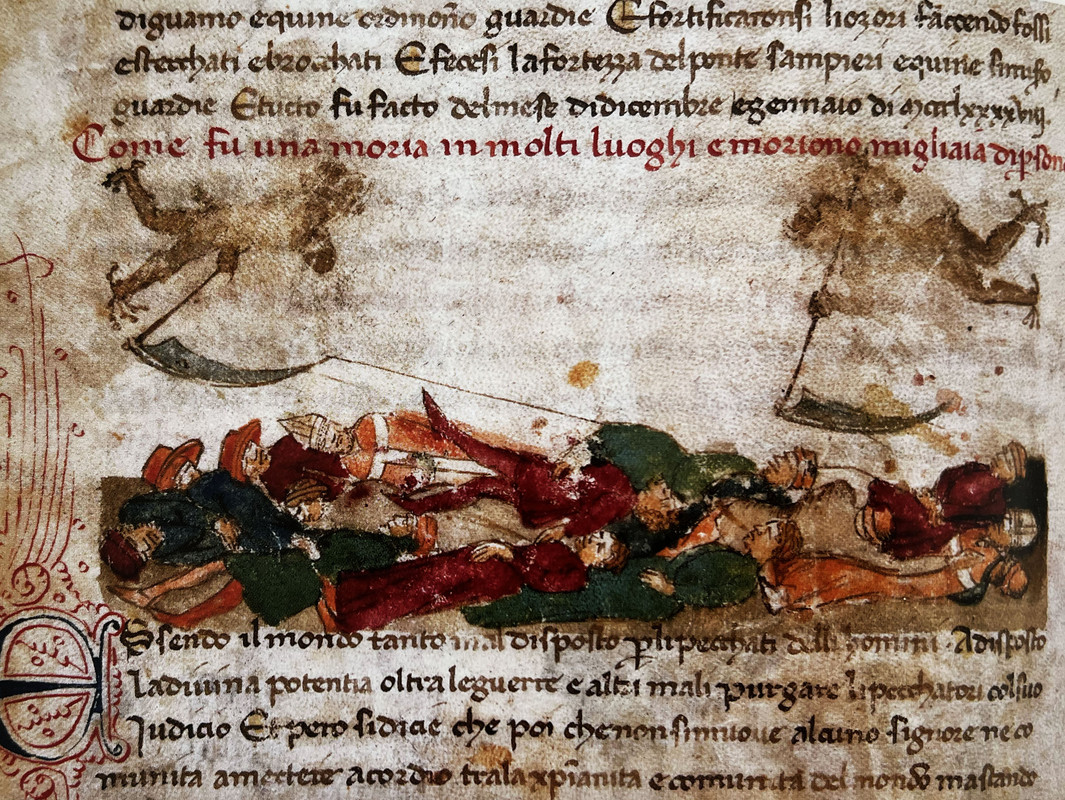 diguamo equine ordinono guardie Efortificaronsi liozori faccendo fossi
estecchati ebrocchati Efecesi lafortezza delponte sampieri equine simiso
guardie Etucto fu facto delmese didicembre egennaio di mcclxxxxviij.
Come fu una moria in molti luoghi e morirono migliaia dipsone
Essendo il mondo tanto mal disposto p li pecchati delli homini Adisposto
ladiuina potentia oltra leguerre e altri mali purgare li pecchatori colsuo
Judicio Et pero sidicie che poi che non simuoue alcuno signore ne co
munita amectere acordio trala xpianita e comunita del mondo mastando